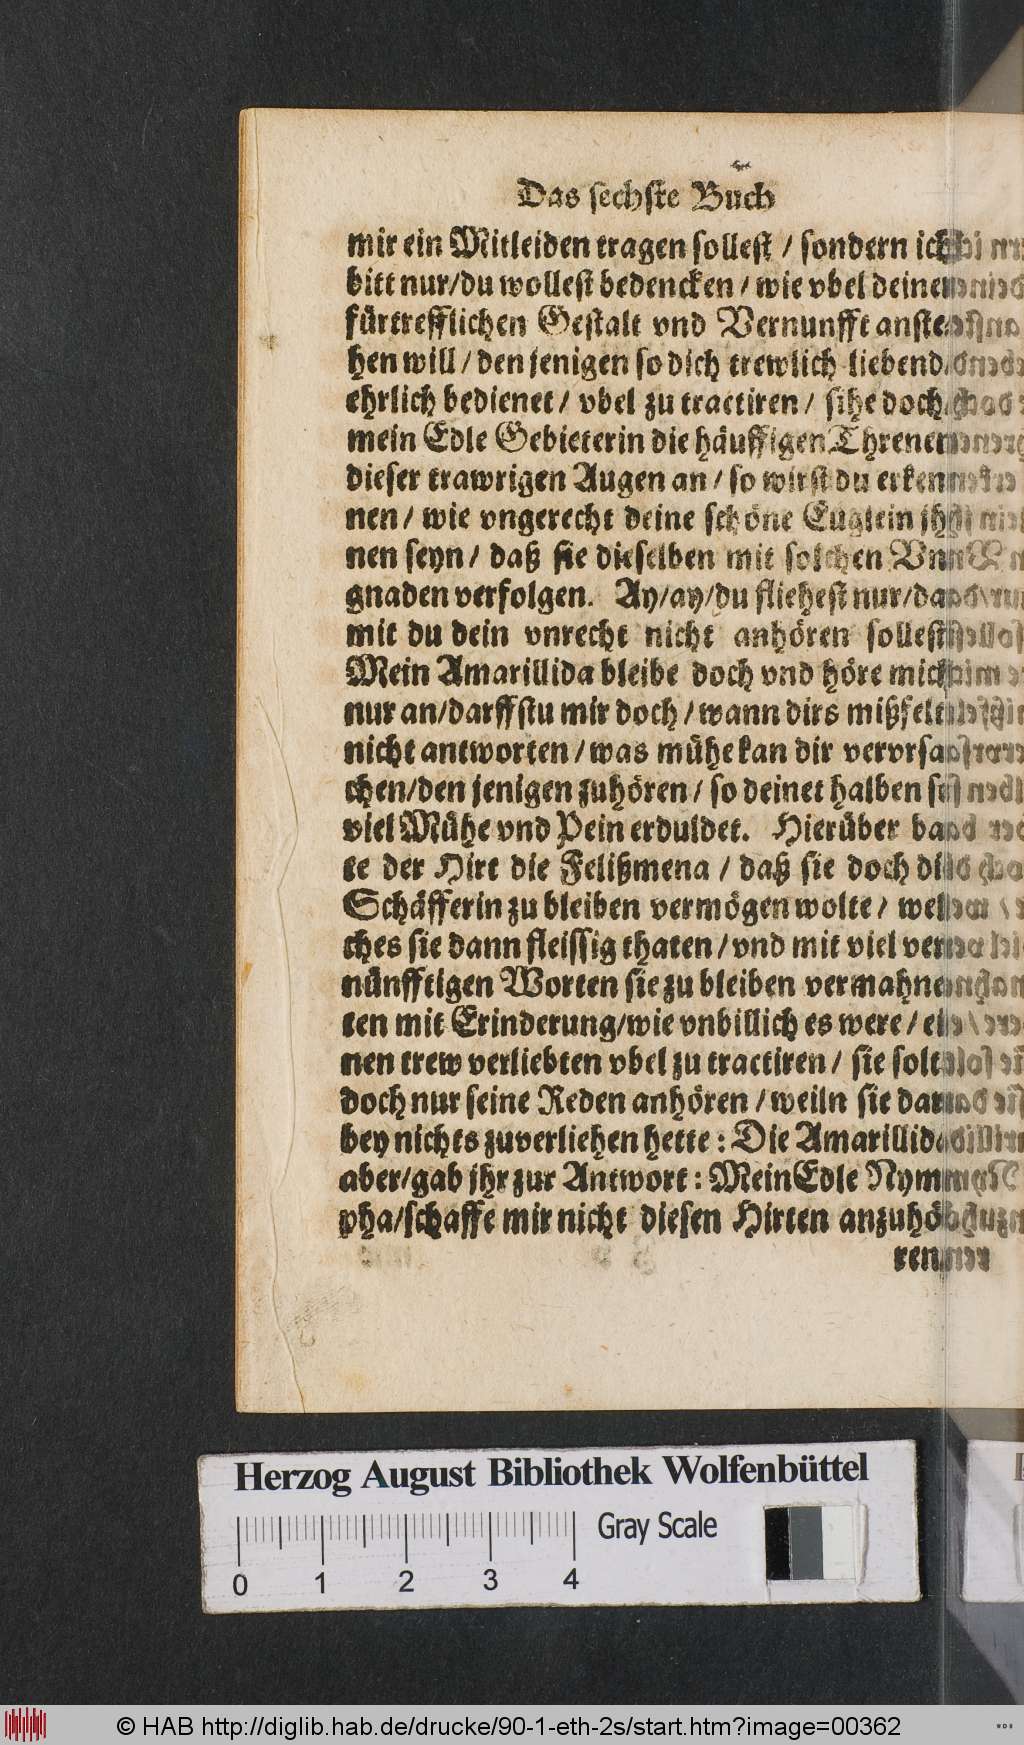 Das sechste Buch
mir ein Mitleiden tragen sollest / sondern ich
bitt nur/du wollest bedencken / wie vbel deiner
fürtrefflichen Gestalt vnd Vernunfft anste-
hen will / den jenigen so dich trewlich liebend/
ehrlich bedienet / vbel zu tractiren / sihe doch
mein Edle Gebieterin die häuffigen Threnen
dieser trawrigen Augen an / so wirst du erken-
nen / wie vngerecht deine schöne Euglein jh-
nen seyn / daß sie dieselben mit solchen Vn-
gnaden verfolgen. Ay/ay/du fliehest nur/da-
mit du dein vnrecht nicht anhören sollest
Mein Amarillida bleibe doch vnd höre mich
nur an/darffstu mir doch / wann dirs mißfelt
nicht antworten / was mühe kan dir vervrsa-
chen/den jenigen zuhören / so deinet halben so
viel Mühe vnd Pein erduldet. Hierüber ba-
te der Hirt die Felißmena / daß sie doch die
Schäfferin zu bleiben vermögen wolte / wel-
ches sie dann fleissig thaten / vnd mit viel ver-
nünfftigen Worten sie zu bleiben vermahne-
ten mit Erinderung/wie vnbillich es were / ei-
nen trew verliebten vbel zu tractiren / sie solt
doch nur seine Reden anhören / weiln sie dar-
bey nichts zuverliehen hette : Die Amarillida
aber/gab jhr zur Antwort : Mein Edle Nym-
pha/schaffe mir nicht diesen Hirten anzuhö-
ren
Herzog August Bibliothek Wolfenbüttel
Gray Scale
0 1 2 3 4
© HAB http://diglib.hab.de/drucke/90-1-eth-2s/start.htm?image=00362